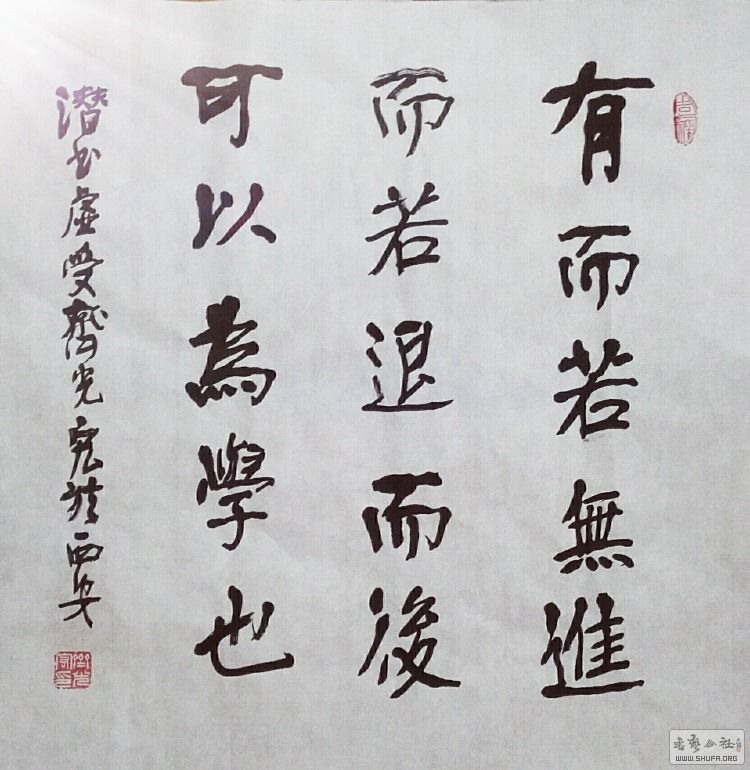 有而若無進
而若退而後
可以為學也
潛書虛受齋光宪於西安
書藝公社
WWW.SHUFA.ORG